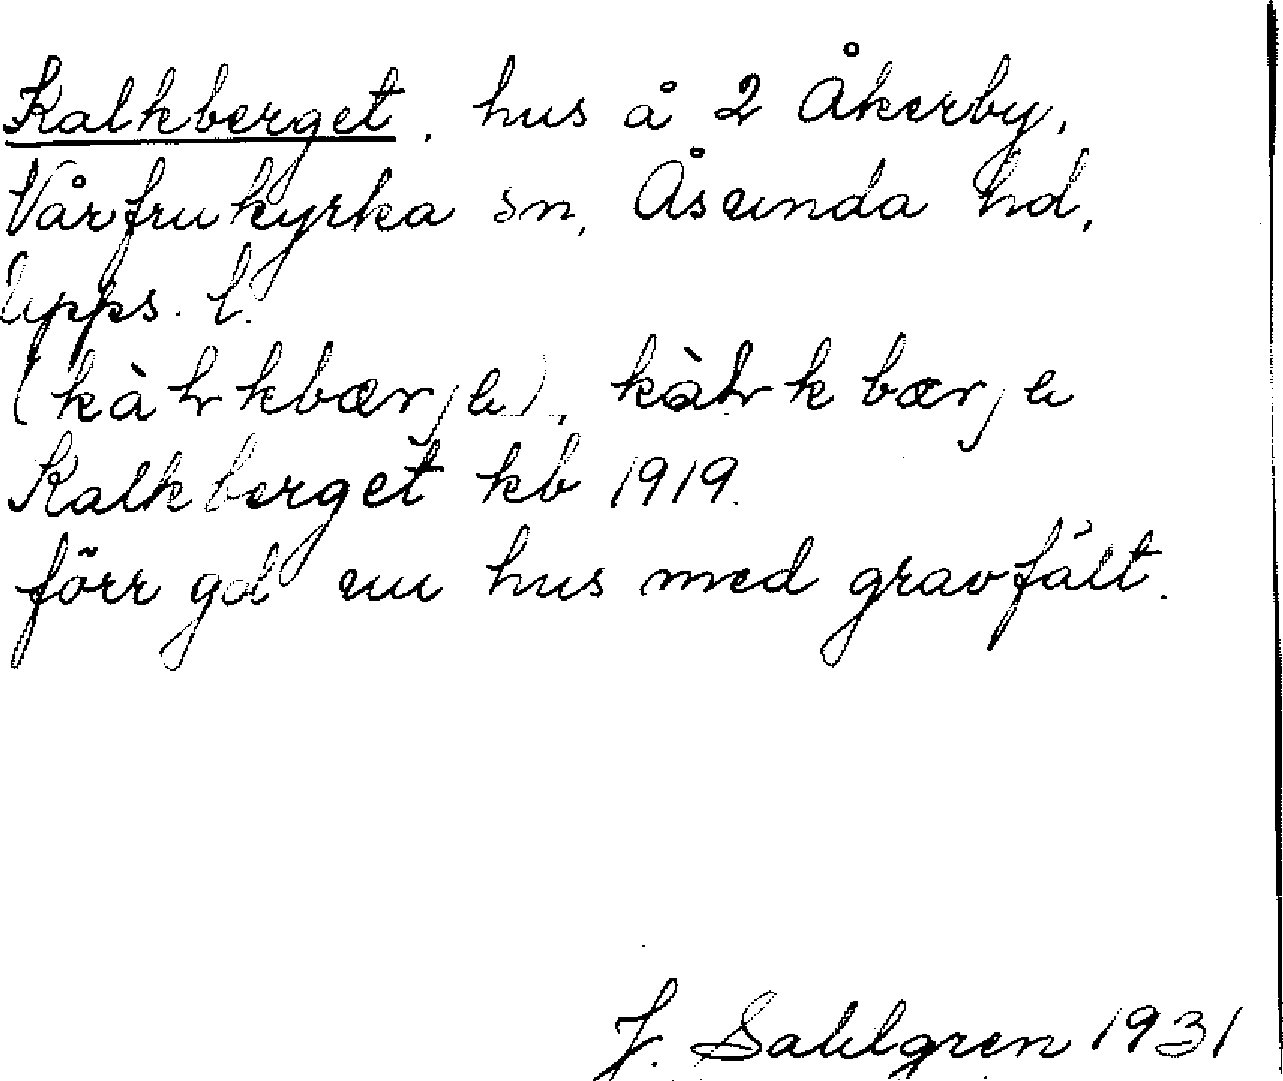 Kalkberget, hus å 2 Åkerby,
Vårfrukyrka sn, Åsunda hd,
Upps. l.
Kalkberget kb 1919.
förr gd nu hus med gravfält.
J. Sahlgren 1931